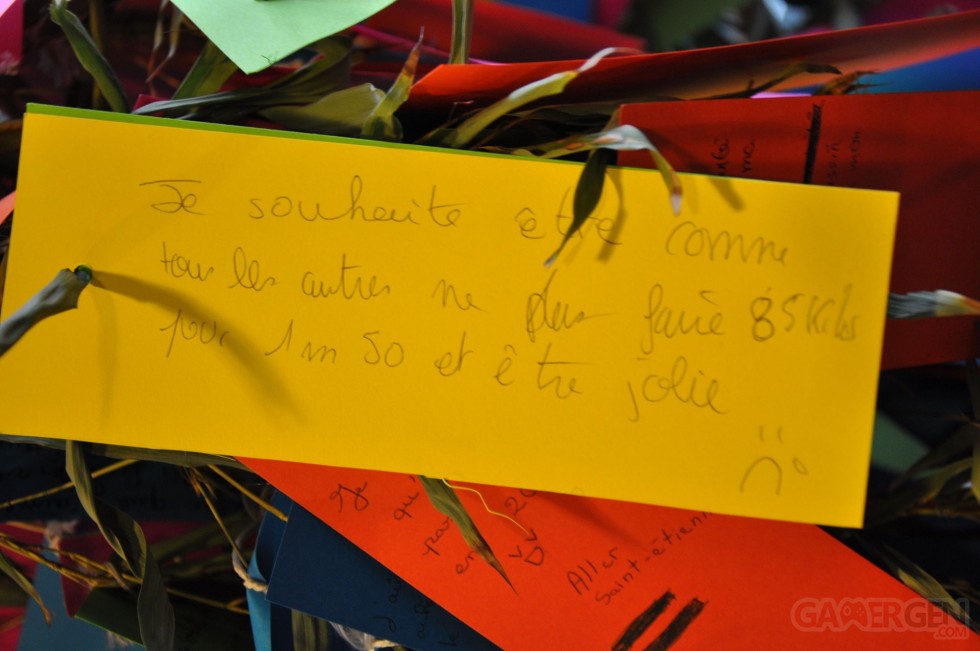 Je souhaite être comme
tous les autres ne plus faire 85 Kilos
pour 1m50 et être jolie
Je
qu'
Aller
Saint-étienne
GAMERGEN
.COM